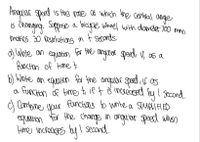 Angular speed is the rate at which the central angle
is changing. Suppose a bicycle wheel with diameter 700 mm
makes 30 revolutions in t seconds.
a) Write an equation for the angular speed, as a
function of time t.
b) Write an equation for the angular speed, as
a function of time t if t is increased by 1 second.
c) Combine your functions to write a SIMPLIFIED
equation for the change in angular speed when
time increases by 1 second.